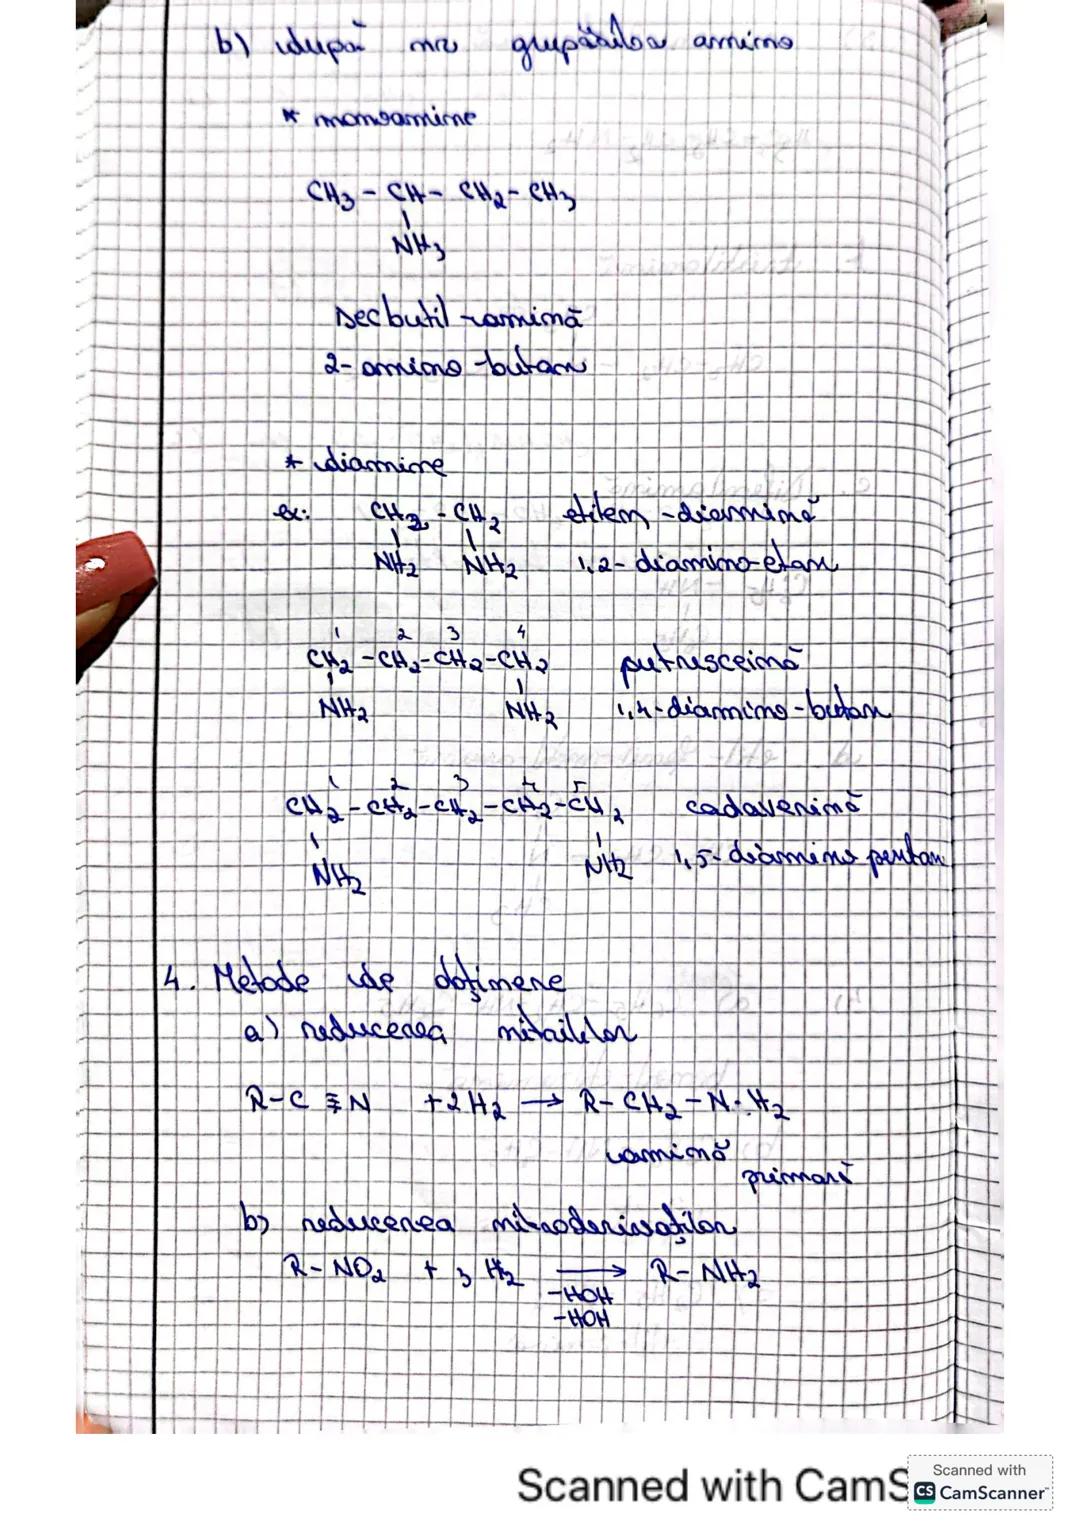 b) după nr grupărilor amino
* monoamine
CH3 - CH - CH2 - CH3
NH3
secbutil-amină
2-amino-butan
* diamine
ex: CH2 - CH2 etilen-diamină
NH2 NH2 1,2-diamino-etan
1 2 3 4
CH2 - CH2 - CH2 - CH2 putresceină
NH2 NH2 1,4-diamino-butan
1 2 3 4 5
CH2 - CH2 - CH2 - CH2 - CH2 cadaverină
NH2 NH2 1,5-diamino pentan
4. Metode de obținere
a) reducerea nitrililor
R-C≡N +2H2 → R-CH2-N:H2
amină
primară
b) reducerea nitroderivaților
R-NO2 + 3H2 → R-NH2
-HOH
-HOH
Scanned with CamS
Scanned with
CS CamScanner